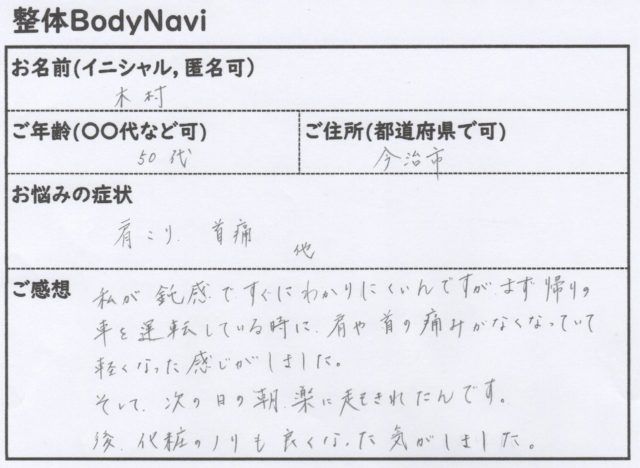 整体BodyNavi
お名前(イニシャル,匿名可)
木村
ご年齢(〇〇代など可)
50代
ご住所(都道府県で可)
今治市
お悩みの症状
肩こり. 首痛
他
ご感想
私が鈍感ですぐにわかりにくいんですが、まず帰りの
車を運転している時に、肩や首の痛みがなくなっていて
軽くなった感じがしました。
そして、次の日の朝、楽に起きれたんです。
後、化粧のノリも良くなった気がしました。